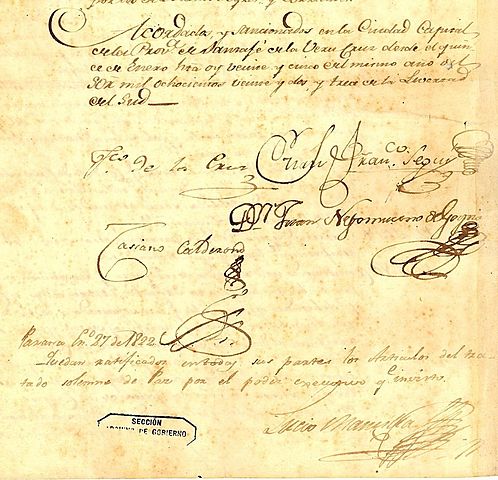 Acordados, y sancionados en la Ciudad Capital
de la Prov.ª de Santafé de la Vera Cruz desde el quin
ce de Enero hta oy veinte y cinco del mismo año del
Sor. mil ochocientos veinte y dos, y trece de la Livertad
del Sud
Fco. de la Cruz
Juan Fran.co Seguí
Dn. Juan Nepomuceno de Goytia
Casiano Calderón
Paraná En.o 27 de 1822
Quedan ratificados en todas sus partes los Artículos del tra
tado solemne de Paz por el poder executivo y
Lucio Mansilla
SECCIÓN
DE GOBIERNO